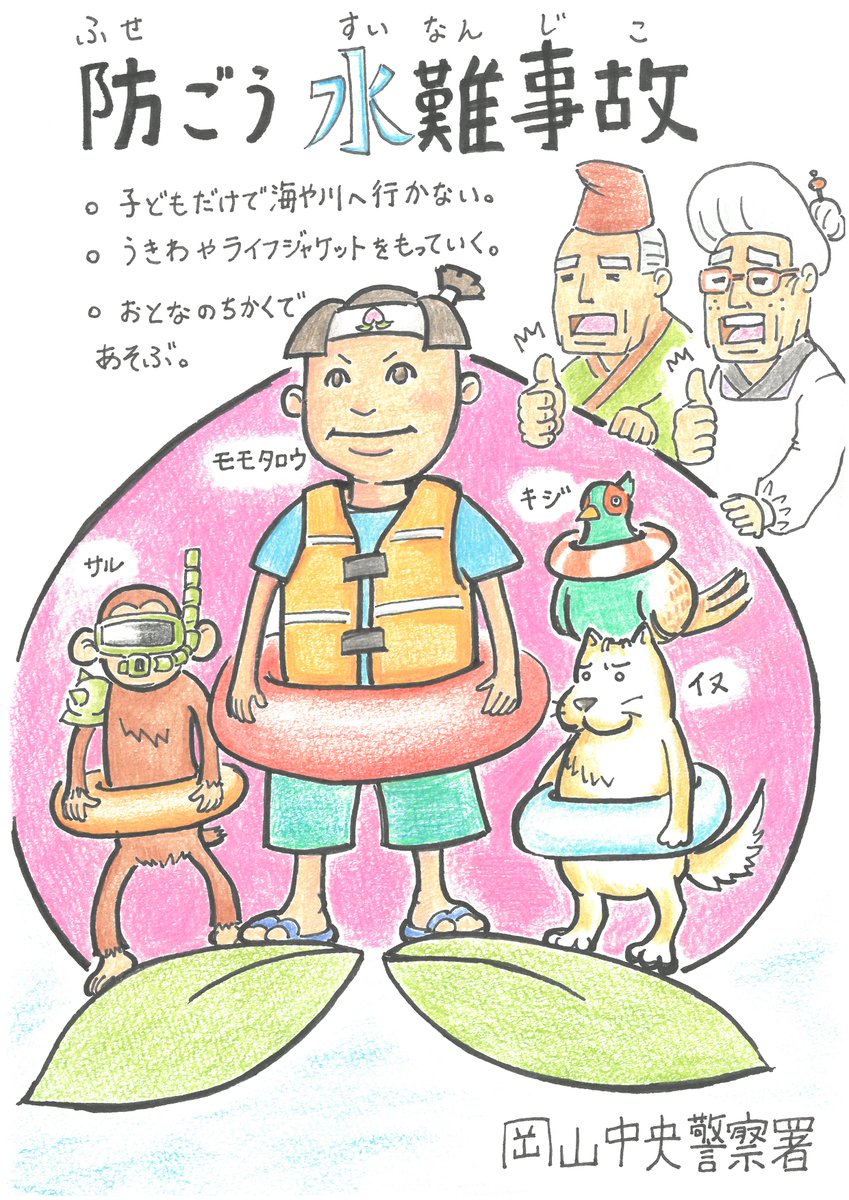 ふせ すいなんじこ
防ごう水難事故
。子どもだけで海や川へ行かない。
。うきわやライフジャケットをもっていく。
。おとなのちかくで
あそぶ。
モモタロウ
キジ
サル
イヌ
岡山中央警察署